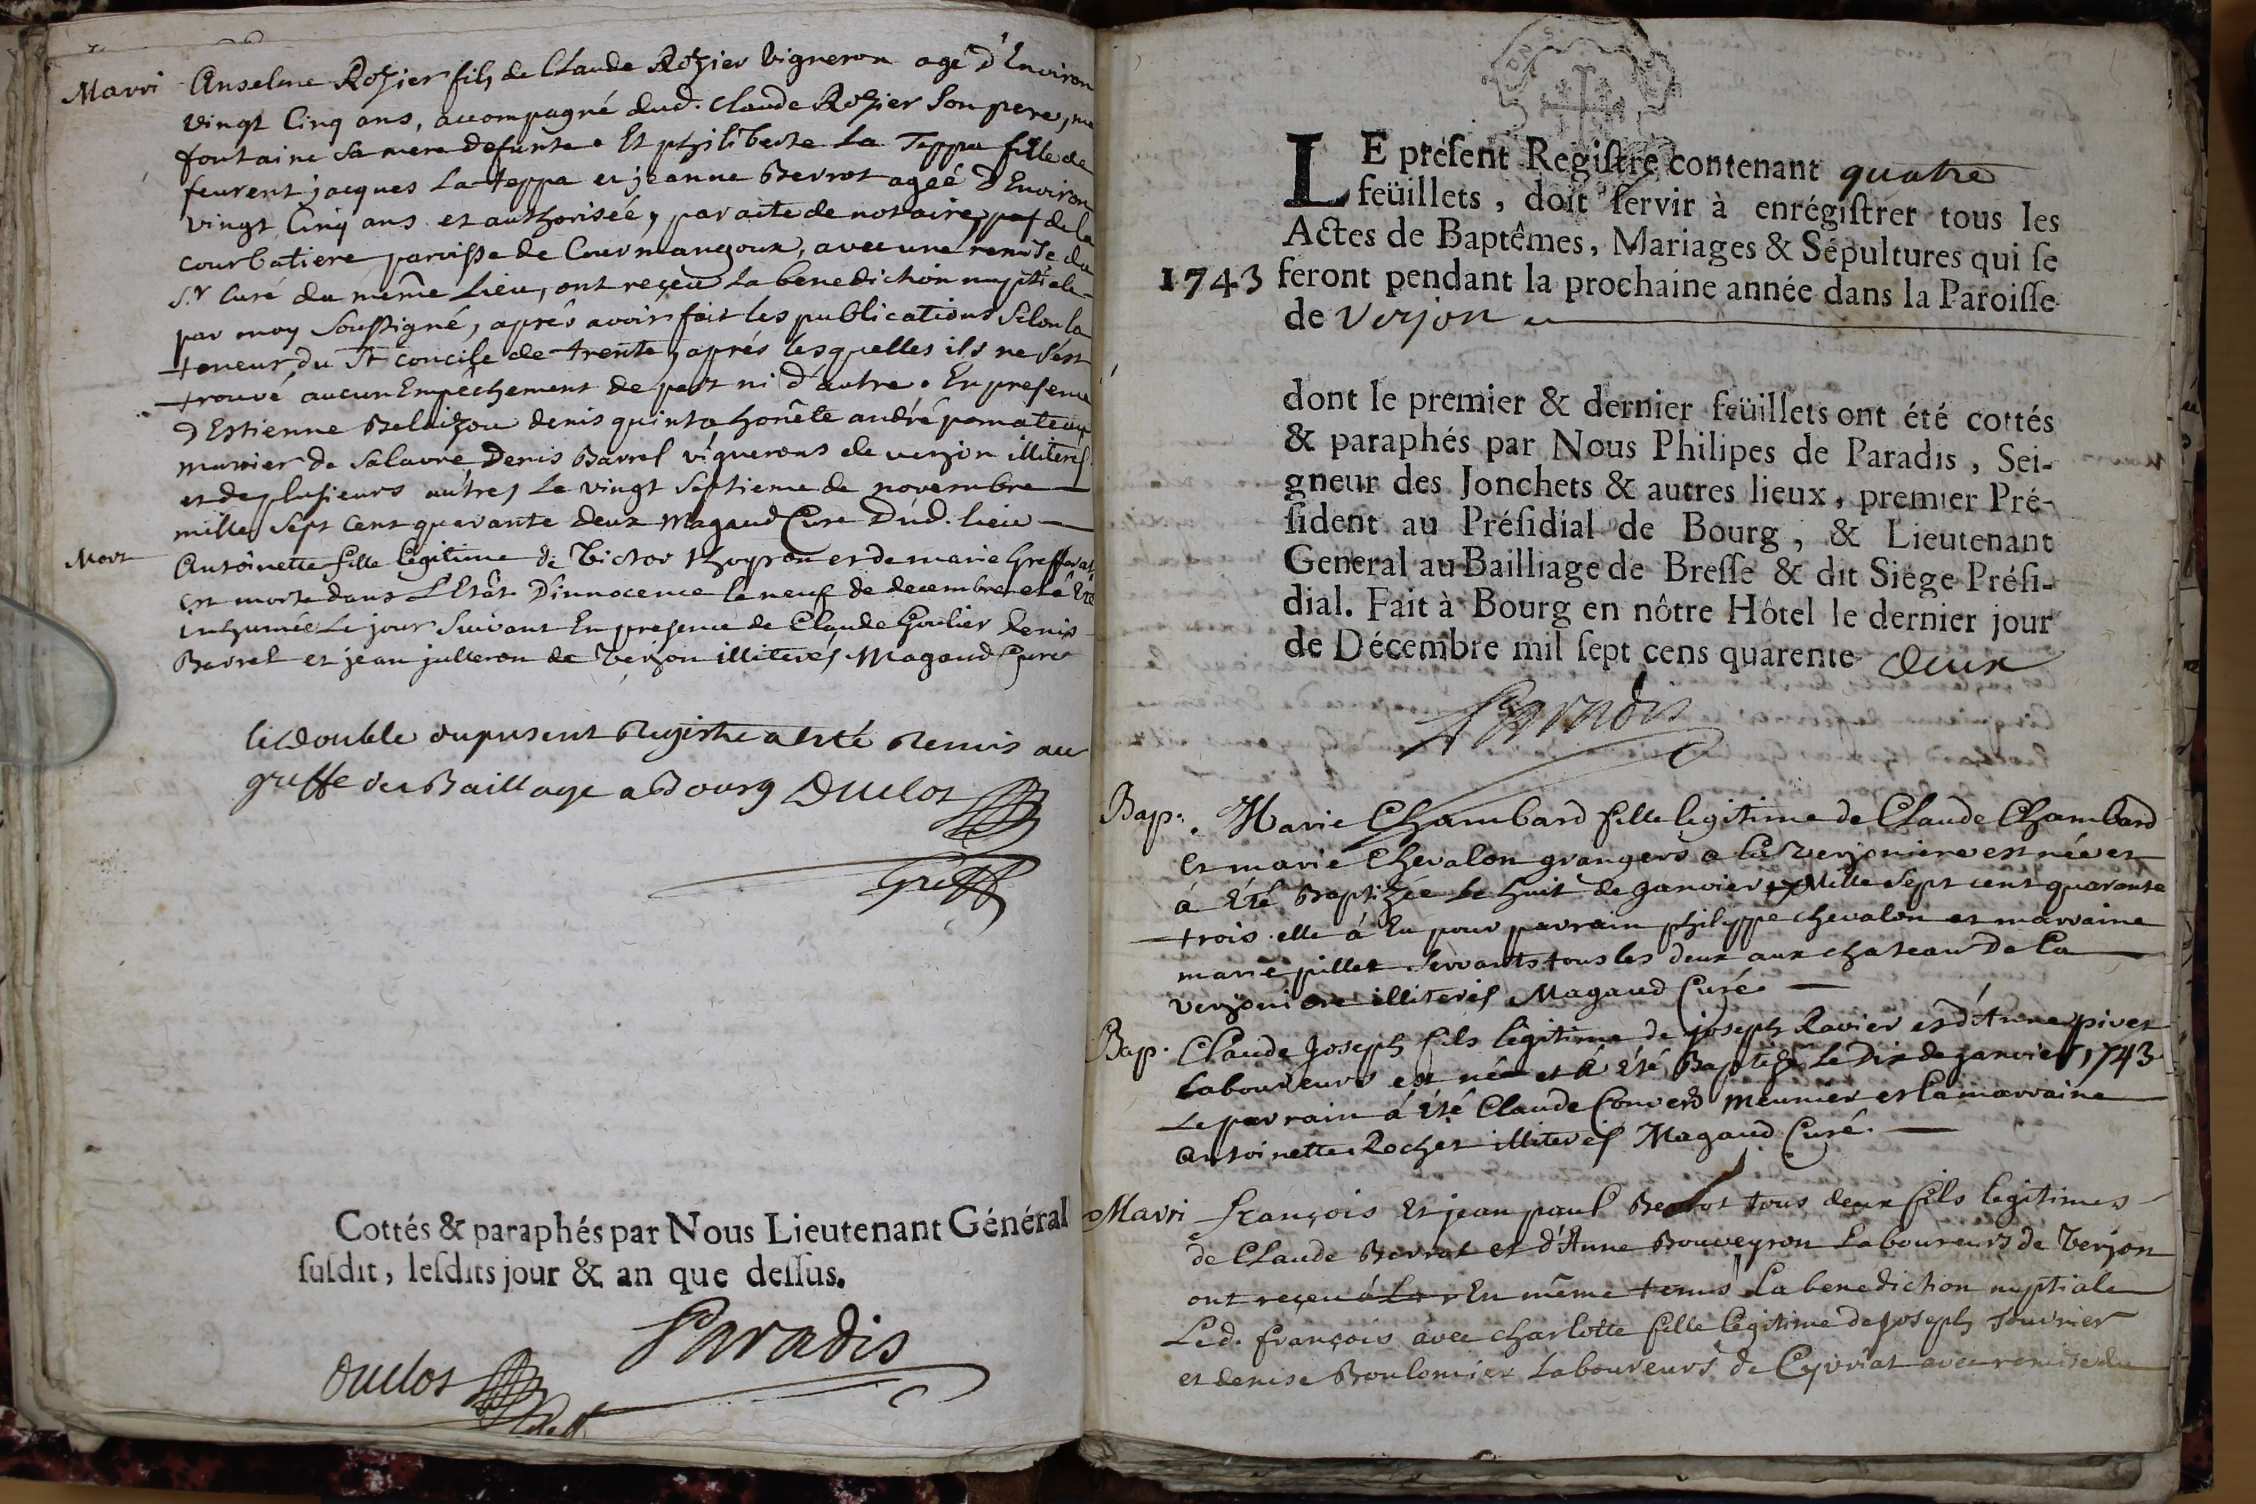 Marri Anselme Rozier fils de Claude Rozier Vigneron agé d'Environ
vingt Cinq ans, accompagné dud. Claude Rozier Son pere,
fontaine Sa mere defunte. Et philiberte La Teppa fille de
feurent jacques La teppa et jeanne Berrot ageé D'Environ
vingt Cinq ans et authorisée, par acte de notaire, de la
courbatiere paroisse de Courmangoux, avec une remise du
S.r Curé du même Lieu, ont reçeu La benediction nuptiale
par moy Soussigné, aprés avoir fait les publications Selon la
teneur du St concile de trente, aprés lesquelles ils ne s'est
trouvé aucun Empêchement de part ni d'autre. En presence
d'Estienne denis quinta honête andré
munier de Salavre Denis Barrel vignerons de verjon illiterés
et de plusieurs autres Le vingt Septieme de novembre
mille Sept Cent quarante deux Magaud Cure Dud. lieu
Mort Antoinette fille legitime de Victor thoyron et de marie
Est morte dans L'Etât D'innocence le neuf de decembre et à Eté
inhumée Le jour Suivant En presence de Claude Goulier Denis
Barrel et jean julleron de Verjon illiterés Magaud Curé
le double du present Registre a esté Remis au
greffe du Baillage a Bourg Duclos
Greff
Cottés & paraphés par Nous Lieutenant Général
susdit, lesdits jour & an que dessus.
Paradis
Duclos
LE présent Registre contenant quatre
feüillets, doit servir à enrégistrer tous les
Actes de Baptêmes, Mariages & Sépultures qui se
1743 feront pendant la prochaine année dans la Paroisse
de Verjon
dont le premier & dernier feüillets ont été cottés
& paraphés par Nous Philipes de Paradis, Sei-
gneur des Jonchets & autres lieux, premier Pré-
sident au Présidial de Bourg, & Lieutenant
General au Bailliage de Bresse & dit Siége Prési-
dial. Fait à Bourg en nôtre Hôtel le dernier jour
de Décembre mil sept cens quarente deux
Paradis
Bap. Marie Chambard fille legitime de Claude Chambard
Et marie Chevalon grangers a La Verjoniere est née et
à Eté Baptizée Le huit de janvier Mille Sept cent quarante
trois elle à Eu pour parrain philippe chevalon et marraine
marie pillet Servants tous les deux aux chateau De La
Verjoniere illiterés Magaud Curé
Bap. Claude Joseph fils legitime de joseph Ravier et d'Anne pivet
Laboureurs est né et à Eté Baptizé Le Dix de janvier 1743
Le parrain á Eté Claude Convert meunier et la marraine
Antoinette Rochet illiterés Magaud Curé.
Marri françois Et jean paul Berrot tous deux fils legitimes
de Claude Berrot et d'Anne Bouveyron Laboureurs de Verjon
ont reçeu En même tems La benediction nuptiale
Led. françois avec charlotte fille legitime de joseph
et denise Boulomier Laboureurs de Cyvriat avec remise du